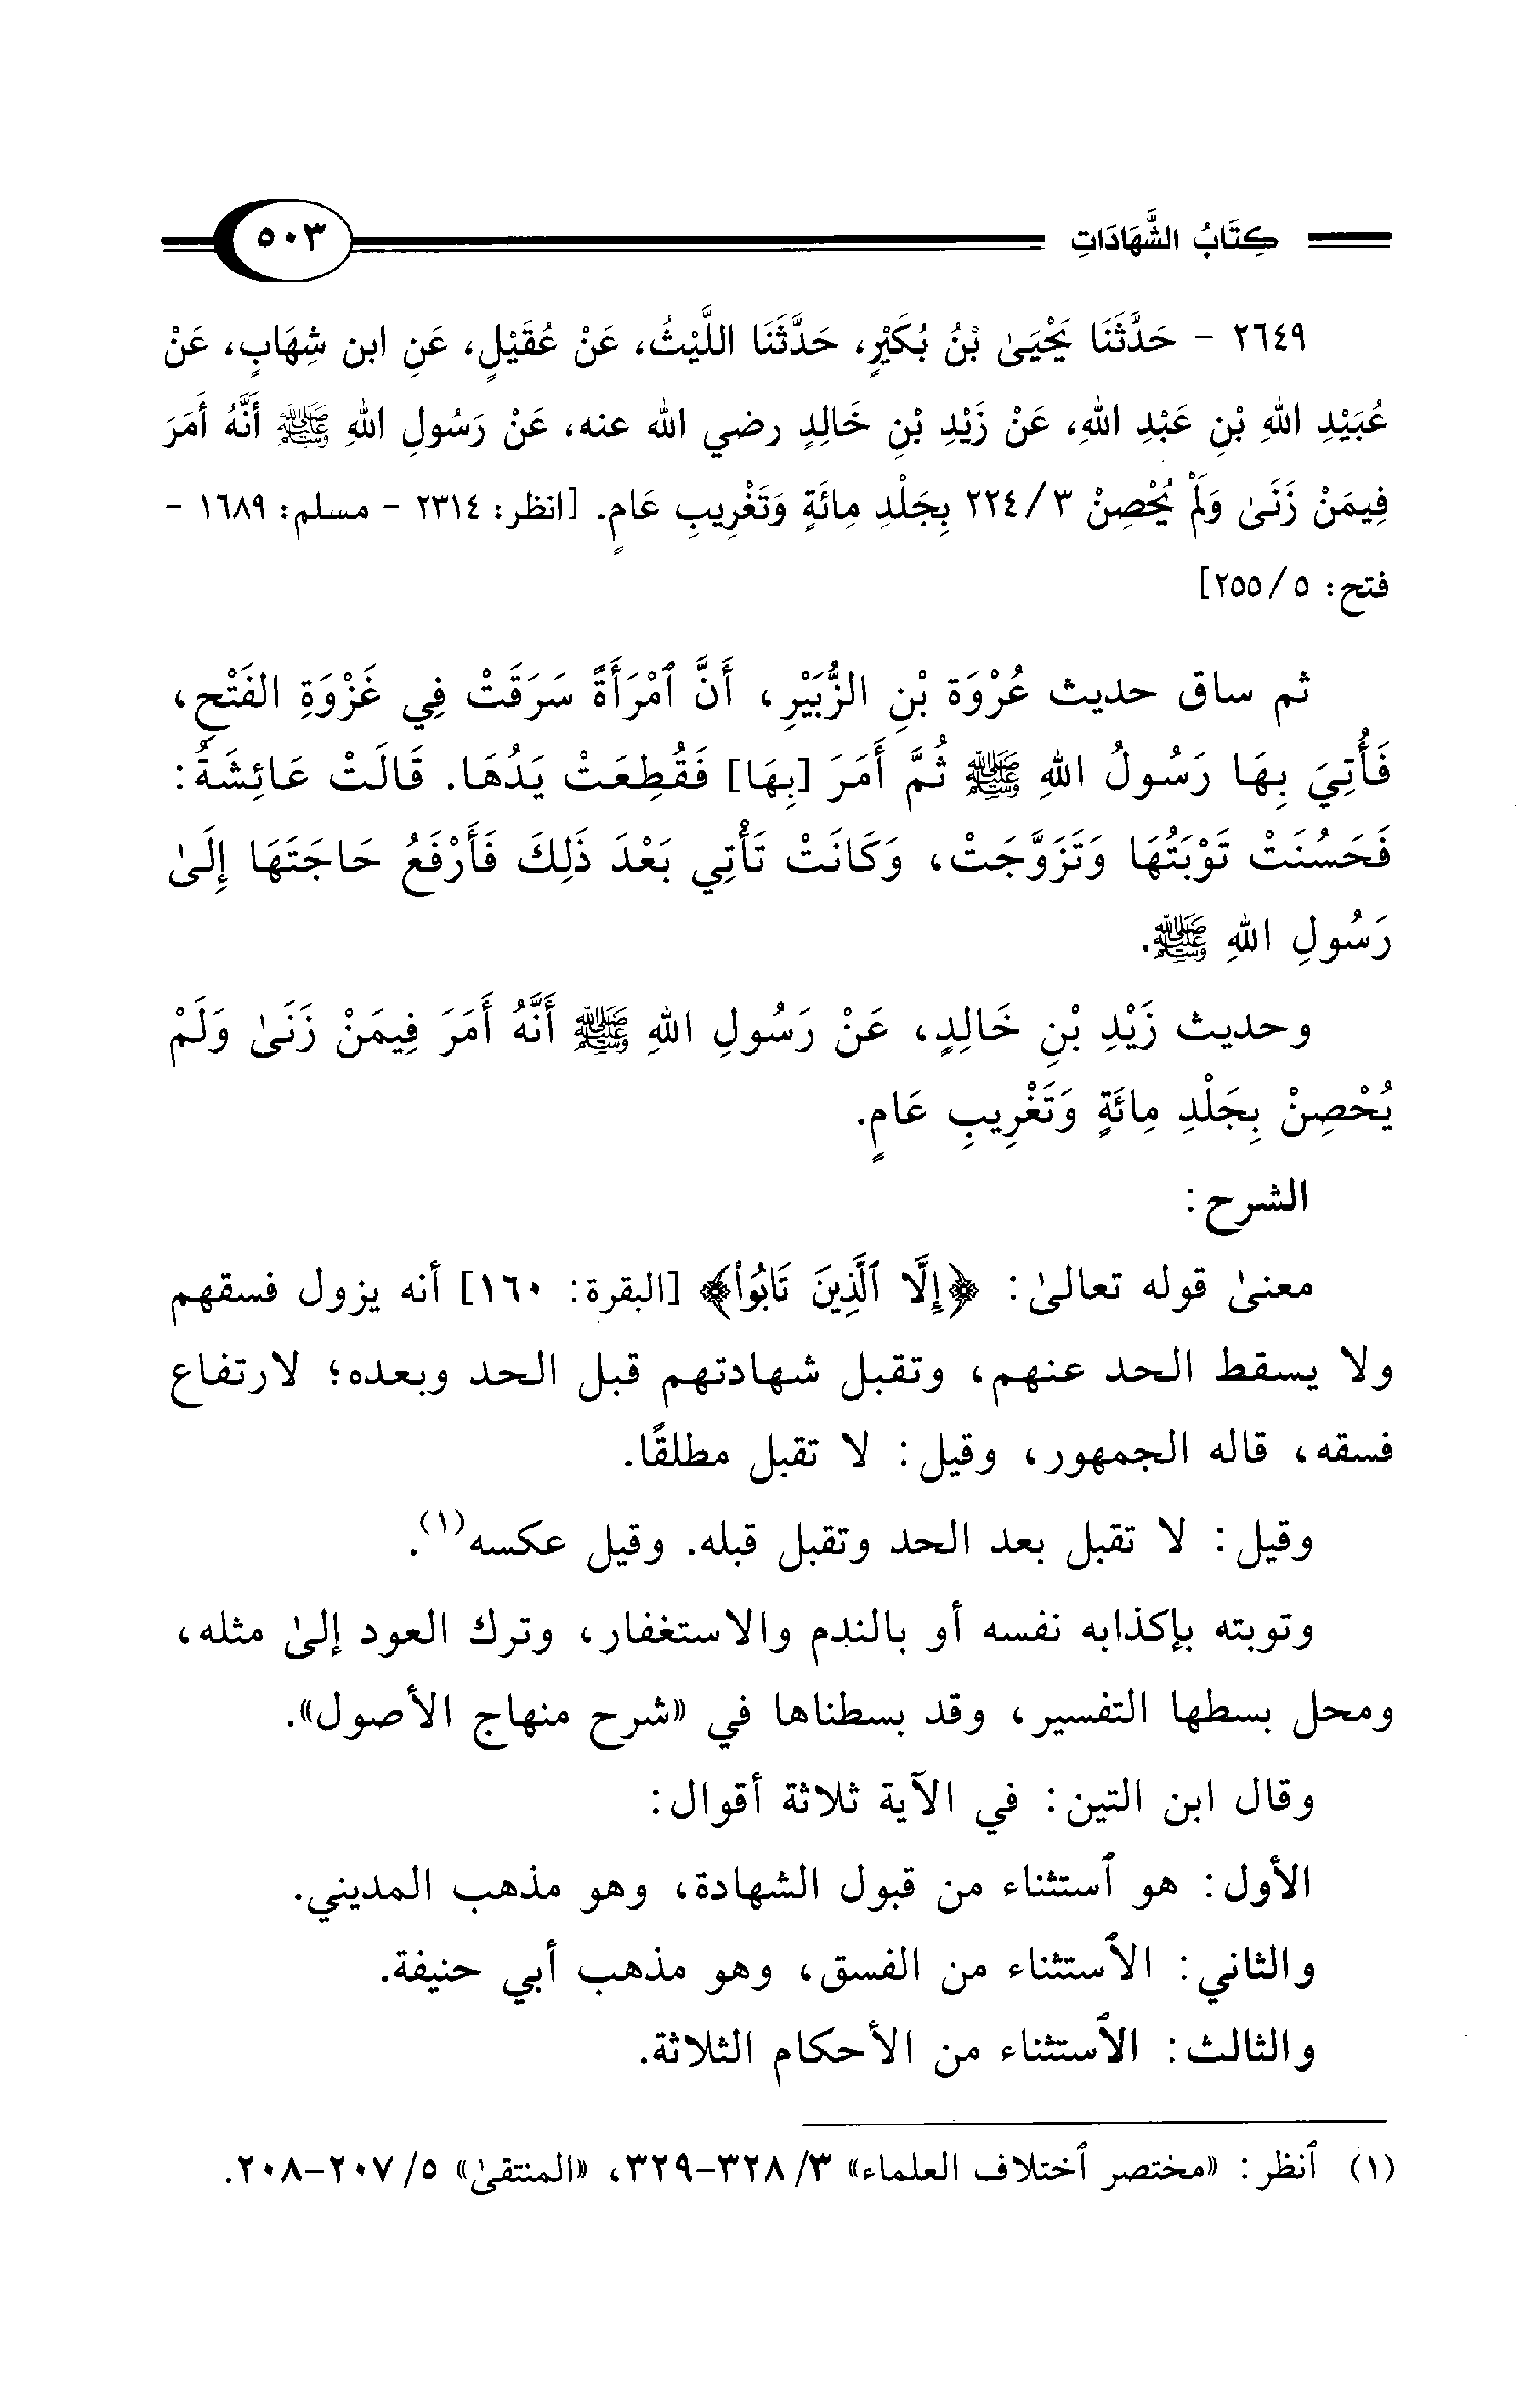 كِتَابُ الشَّهَادَاتِ ٥٠٣
٢٦٤٩ - حَدَّثَنَا يَحْيَىٰ بْنُ بُكَيْرٍ، حَدَّثَنَا اللَّيْثُ، عَنْ عُقَيْلٍ، عَنِ ابن شِهَابٍ، عَنْ
عُبَيْدِ اللهِ بْنِ عَبْدِ اللهِ، عَنْ زَيْدِ بْنِ خَالِدٍ رضي الله عنه، عَنْ رَسُولِ اللهِ ﷺ أَنَّهُ أَمَرَ
فِيمَنْ زَنَىٰ وَلَمْ يُحْصِنْ ٢٢٤/٣ بِجَلْدِ مِائَةٍ وَتَغْرِيبِ عَامٍ. [انظر: ٢٣١٤ - مسلم: ١٦٨٩ -
فتح: ٢٥٥/٥]
ثم ساق حديث عُرْوَة بْنِ الزُّبَيْرِ، أَنَّ ٱمْرَأَةً سَرَقَتْ فِي غَزْوَةِ الفَتْحِ،
فَأُتِيَ بِهَا رَسُولُ اللهِ ﷺ ثُمَّ أَمَرَ [بِهَا] فَقُطِعَتْ يَدُهَا. قَالَتْ عَائِشَةُ:
فَحَسُنَتْ تَوْبَتُهَا وَتَزَوَّجَتْ، وَكَانَتْ تَأْتِي بَعْدَ ذَلِكَ فَأَرْفَعُ حَاجَتَهَا إِلَىٰ
رَسُولِ اللهِ ﷺ.
وحديث زَيْدِ بْنِ خَالِدٍ، عَنْ رَسُولِ اللهِ ﷺ أَنَّهُ أَمَرَ فِيمَنْ زَنَىٰ وَلَمْ
يُحْصِنْ بِجَلْدِ مِائَةٍ وَتَغْرِيبِ عَامٍ.
الشرح:
معنىٰ قوله تعالىٰ: ﴿إِلَّا ٱلَّذِينَ تَابُوا۟﴾ [البقرة: ١٦٠] أنه يزول فسقهم
ولا يسقط الحد عنهم، وتقبل شهادتهم قبل الحد وبعده؛ لارتفاع
فسقه، قاله الجمهور، وقيل: لا تقبل مطلقًا.
وقيل: لا تقبل بعد الحد وتقبل قبله. وقيل عكسه(١).
وتوبته بإكذابه نفسه أو بالندم والاستغفار، وترك العود إلىٰ مثله،
ومحل بسطها التفسير، وقد بسطناها في «شرح منهاج الأصول».
وقال ابن التين: في الآية ثلاثة أقوال:
الأول: هو ٱستثناء من قبول الشهادة، وهو مذهب المديني.
والثاني: الٱستثناء من الفسق، وهو مذهب أبي حنيفة.
والثالث: الٱستثناء من الأحكام الثلاثة.
(١) ٱنظر: «مختصر ٱختلاف العلماء» ٣/ ٣٢٨-٣٢٩، «المنتقىٰ» ٥/ ٢٠٧-٢٠٨.